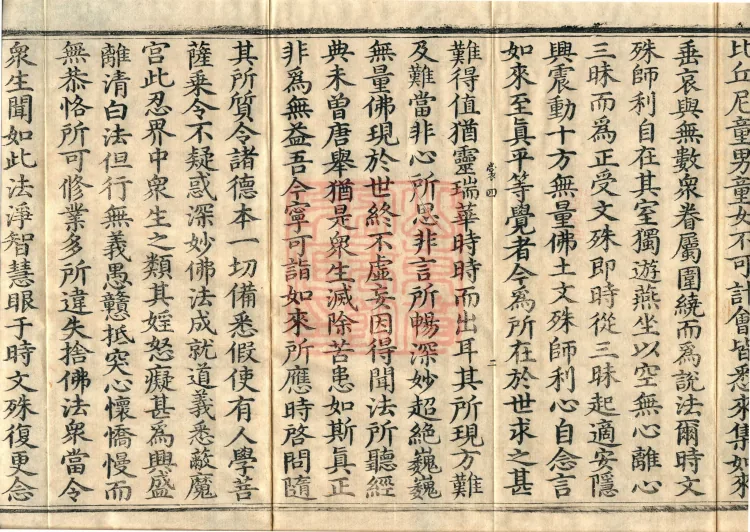 比丘尼童男童女不可計會皆悉來集如來
垂哀與無數衆眷屬圍繞而爲說法爾時文
殊師利自在其室獨遊燕坐以空無心離心
三昧而爲正受文殊即時從三昧起適安隱
興震動十方無量佛土文殊師利心自念言
如來至眞平等覺者今爲所在於世求之甚
難得值猶靈瑞華時時而出耳其所現方難
及難當非心所思非言所暢深妙超絕巍巍
無量佛現於世終不虛妄因得聞法所聽經
典未曽唐舉猶是衆生滅除苦患如斯眞正
非爲無益吾今寧可詣如來所應時啓問隨
其所質令諸德本一切備悉假使有人學菩
薩乘令不疑惑深妙佛法成就道義悉蔽魔
宫此忍界中衆生之類其婬怒癡甚爲興盛
離清白法但行無義愚戇抵突心懷憍慢而
無恭恪所可修業多所違失捨佛法衆當令
衆生聞如此法淨智慧眼于時文殊復更念